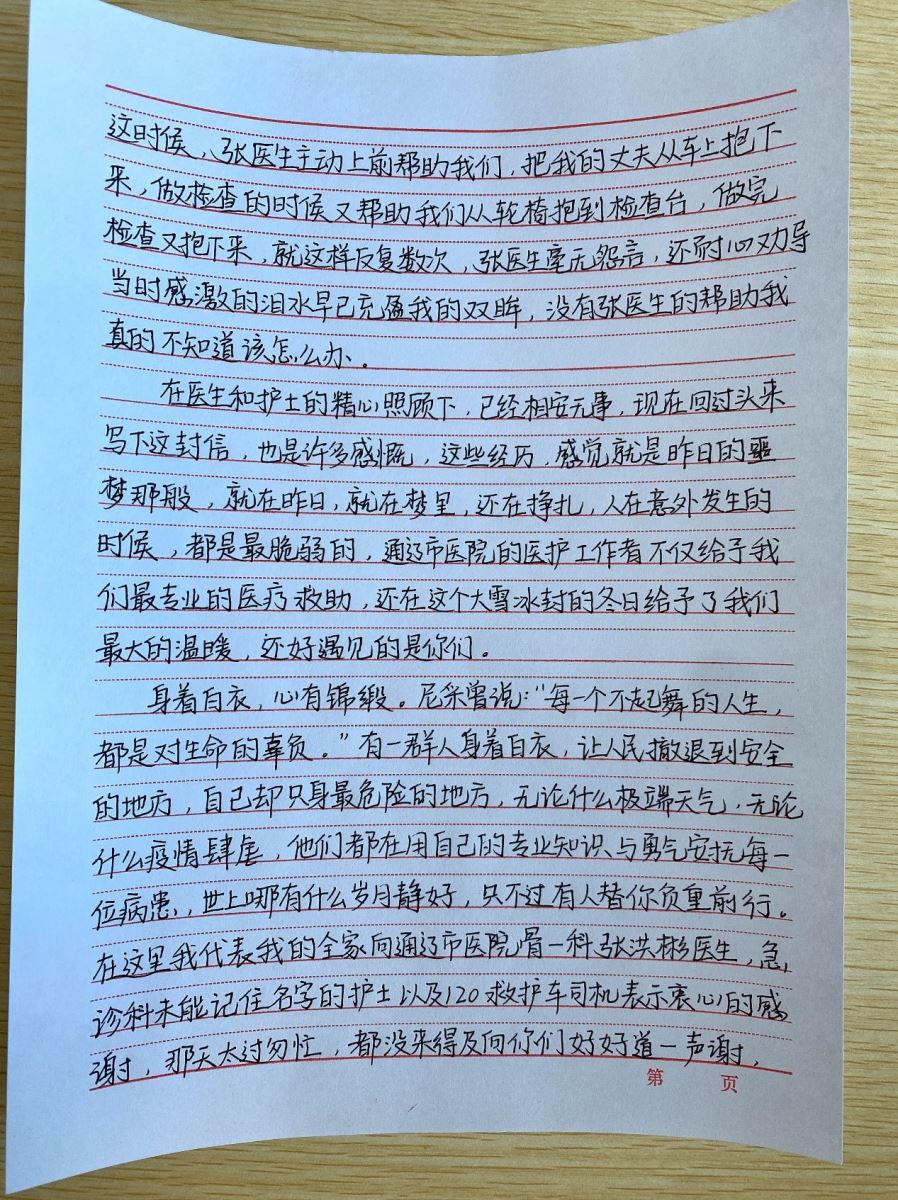 这时候，张医生主动上前帮助我们，把我的丈夫从车上抱下
来，做检查的时候又帮助我们从轮椅抱到检查台，做完
检查又抱下来，就这样反复数次，张医生毫无怨言，还耐心劝导
当时感激的泪水早已充盈我的双眸，没有张医生的帮助我
真的不知道该怎么办。
在医生和护士的精心照顾下，已经相安无事，现在回过头来
写下这封信，也是许多感慨，这些经历，感觉就是昨日的噩
梦那般，就在昨日，就在梦里，还在挣扎，人在意外发生的
时候，都是最脆弱的，通辽市医院的医护工作者不仅给予我
们最专业的医疗救助，还在这个大雪冰封的冬日给予了我们
最大的温暖，还好遇见的是你们。
身着白衣，心有锦缎。尼采曾说：“每一个不起舞的人生，
都是对生命的辜负。”有一群人身着白衣，让人民撤退到安全
的地方，自己却只身最危险的地方，无论什么极端天气，无论
什么疫情肆虐，他们都在用自己的专业知识与勇气安抚每一
位病患，世上哪有什么岁月静好，只不过有人替你负重前行。
在这里我代表我的全家向通辽市医院骨一科张洪彬医生，急
诊科未能记住名字的护士以及120救护车司机表示衷心的感
谢，那天太过匆忙，都没来得及向你们好好道一声谢，
第 页